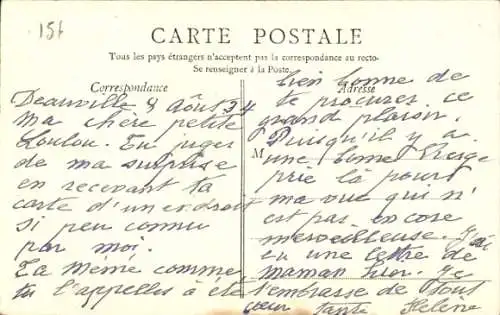 156
CARTE POSTALE
Tous les pays étrangers n'acceptent pas la correspondance au recto-
Se renseigner à la Poste.
Correspondance
Deauville 8 Août 34
Ma chère petite
Loulou. Tu juges
de ma surprise
en recevant ta
carte d'un endroit
si peu connu
par moi.
Ta Mémé comme
tu l'appelles à été
Adresse
bien bonne de
te procurer ce
grand plaisir.
Puisqu'il y a
M
une bonne Vierge
prie là pour
ma vue qui n'
est pas encore
merveilleuse. J'ai
eu une lettre de
maman hier. Je
t'embrasse de tout
cœur tante Hélène